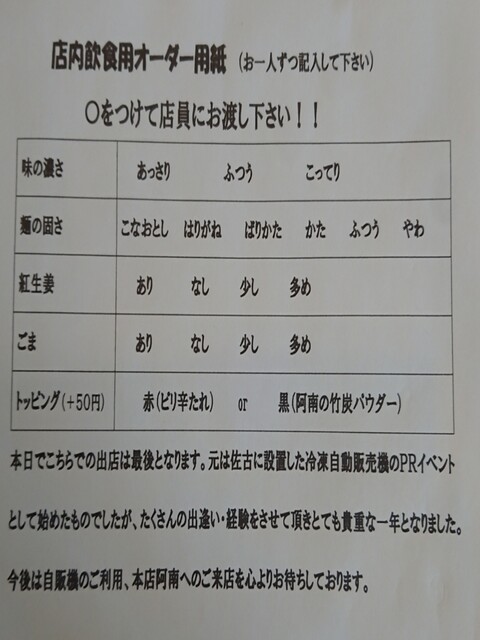 店内飲食用オーダー用紙 (お一人ずつ記入して下さい)
〇をつけて店員にお渡し下さい！！
味の濃さ あっさり ふつう こってり
麺の固さ こなおとし はりがね ばりかた かた ふつう やわ
紅生姜 あり なし 少し 多め
ごま あり なし 少し 多め
トッピング(+50円) 赤(ピリ辛たれ) or 黒(阿南の竹炭パウダー)
本日でこちらでの出店は最後となります。元は佐古に設置した冷凍自動販売機のPRイベント
として始めたものでしたが、たくさんの出逢い・経験をさせて頂きとても貴重な一年となりました。
今後は自販機のご利用、本店阿南へのご来店を心よりお待ちしております。